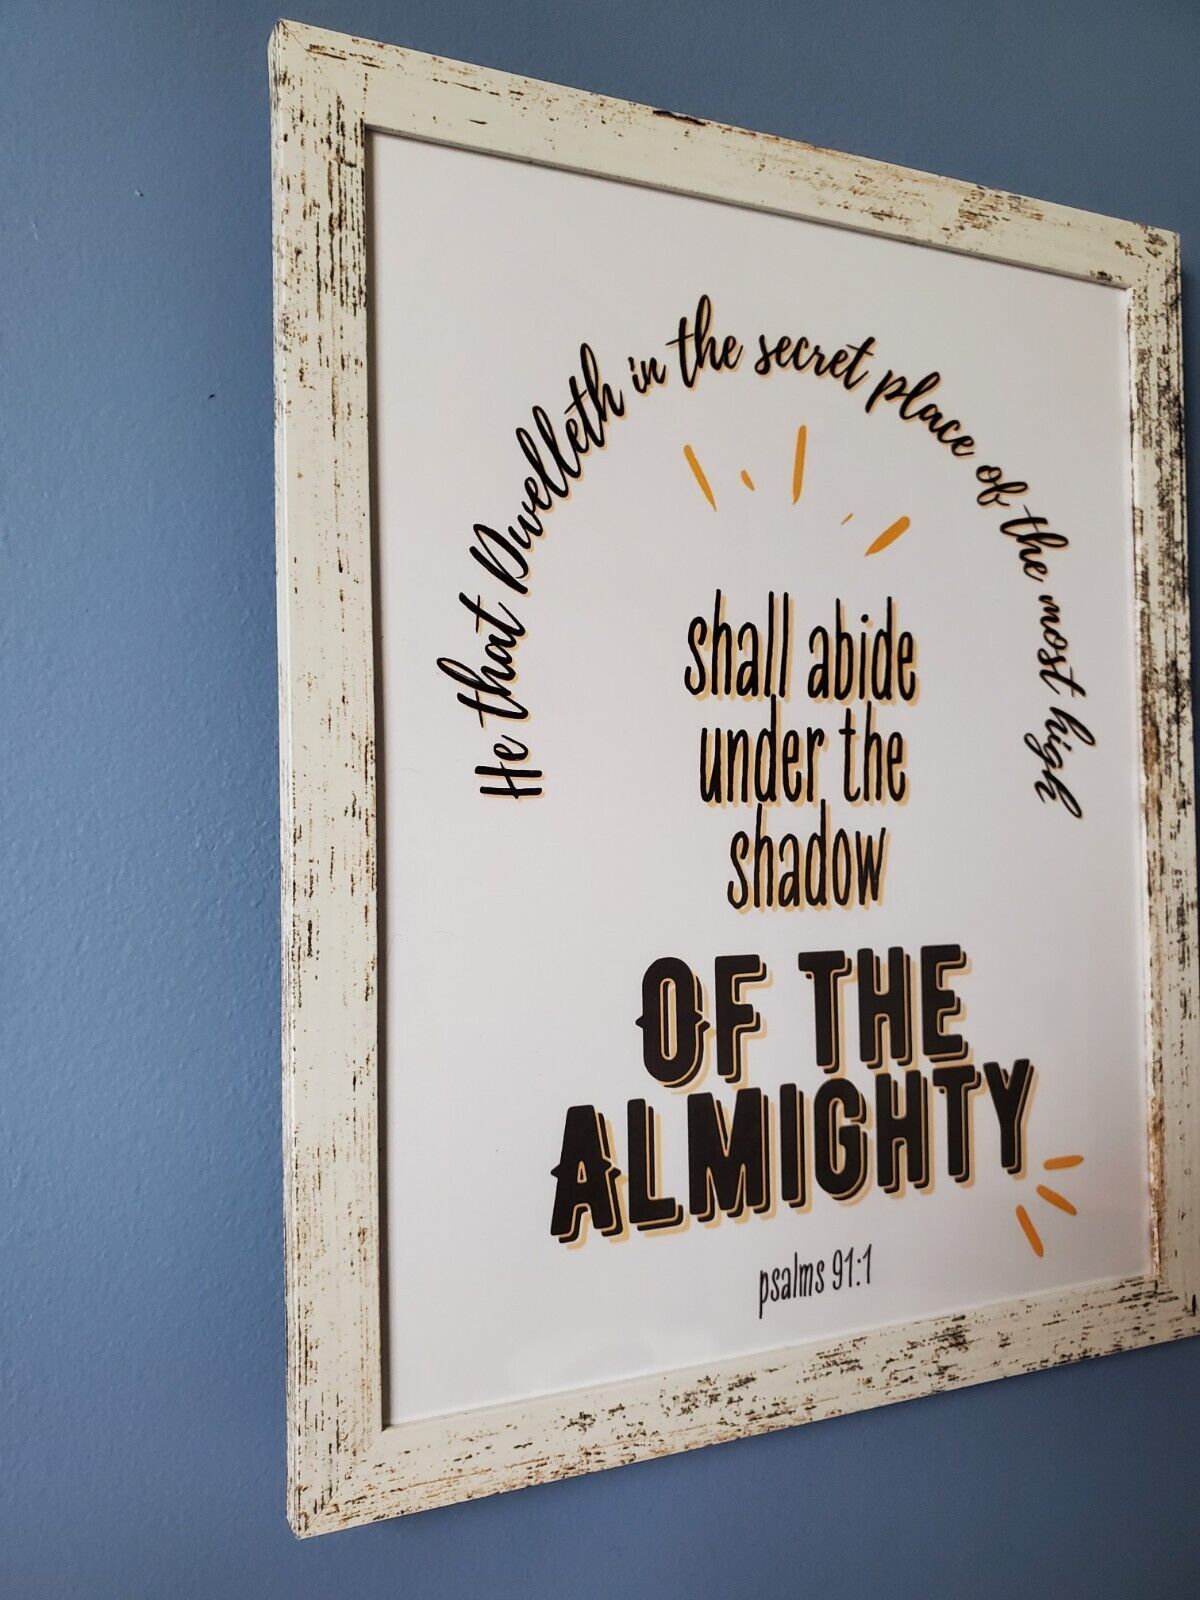 He that Dwelleth in the secret place of the most high
shall abide
under the
shadow
OF THE
ALMIGHTY
psalms 91:1